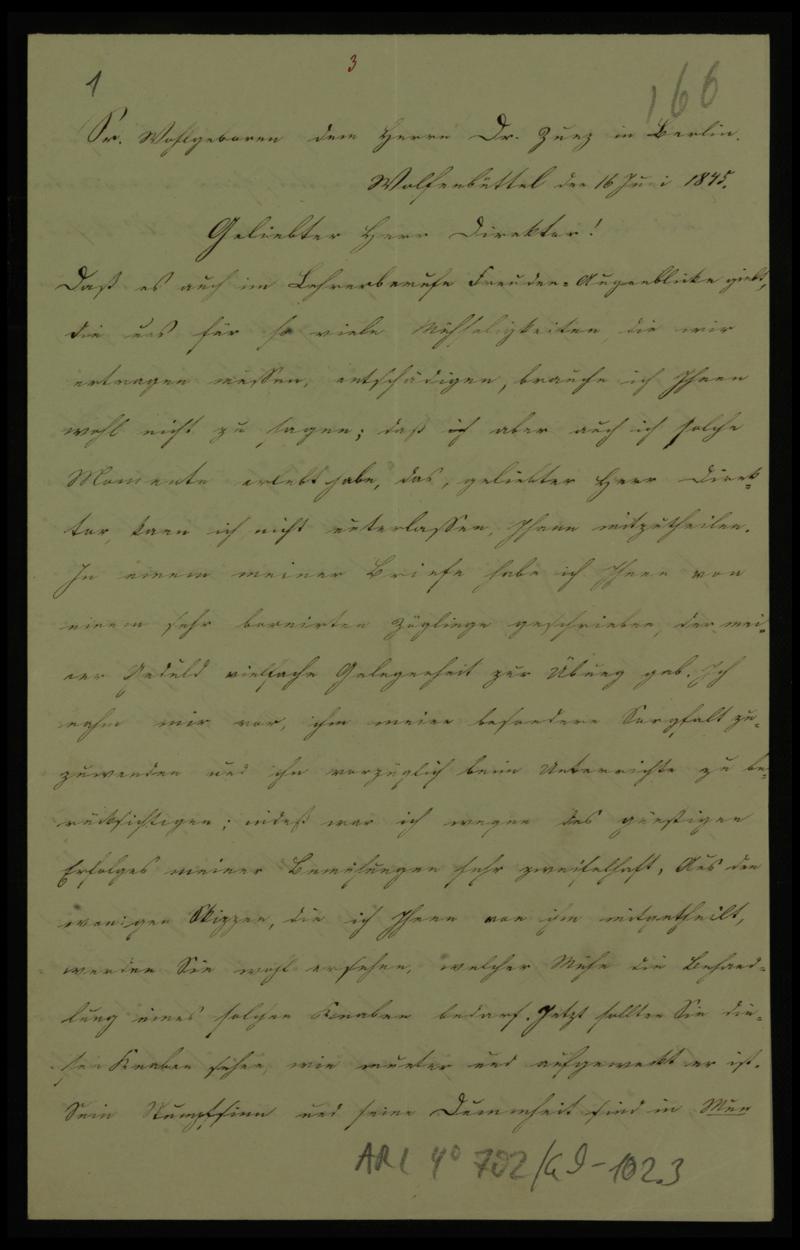 1
3
166
Sr. Wohlgeboren dem Herrn Dr. Zunz in Berlin.
Wolfenbüttel den 16 Juni 1845.
Geliebter Herr Direktor!
Daß es auch im Lehrerberufe Freuden-Augenblicke giebt,
die uns für so viele Mühseligkeiten, die wir
ertragen müssen, entschädigen, brauche ich Ihnen
wohl nicht zu sagen; daß aber auch ich solche
Momente erlebt habe, das, geliebter Herr Direk-
tor, kann ich nicht unterlassen, Ihnen mitzutheilen.
In einem meiner Briefe habe ich Ihnen von
einem sehr bornirten Zöglinge geschrieben, der mei-
ner Geduld vielfache Gelegenheit zur Übung gab. Ich
nahm mir vor, ihm meine besondere Sorgfalt zu-
zuwenden und ihn vorzüglich beim Unterrichte zu be-
rücksichtigen; indeß war ich wegen des günstigen
Erfolges meiner Bemühungen sehr zweifelhaft. Aus den
wenigen Skizzen, die ich Ihnen von ihm mitgetheilt,
werden Sie wohl ersehen, welcher Mühe die Behand-
lung eines solchen Knaben bedarf. Jetzt sollten Sie die-
sen Knaben sehen, wie munter und aufgeweckt er ist.
Sein Stumpfsinn und seine Dummheit sind in Mun
ARC 4° 792/G9-102.3